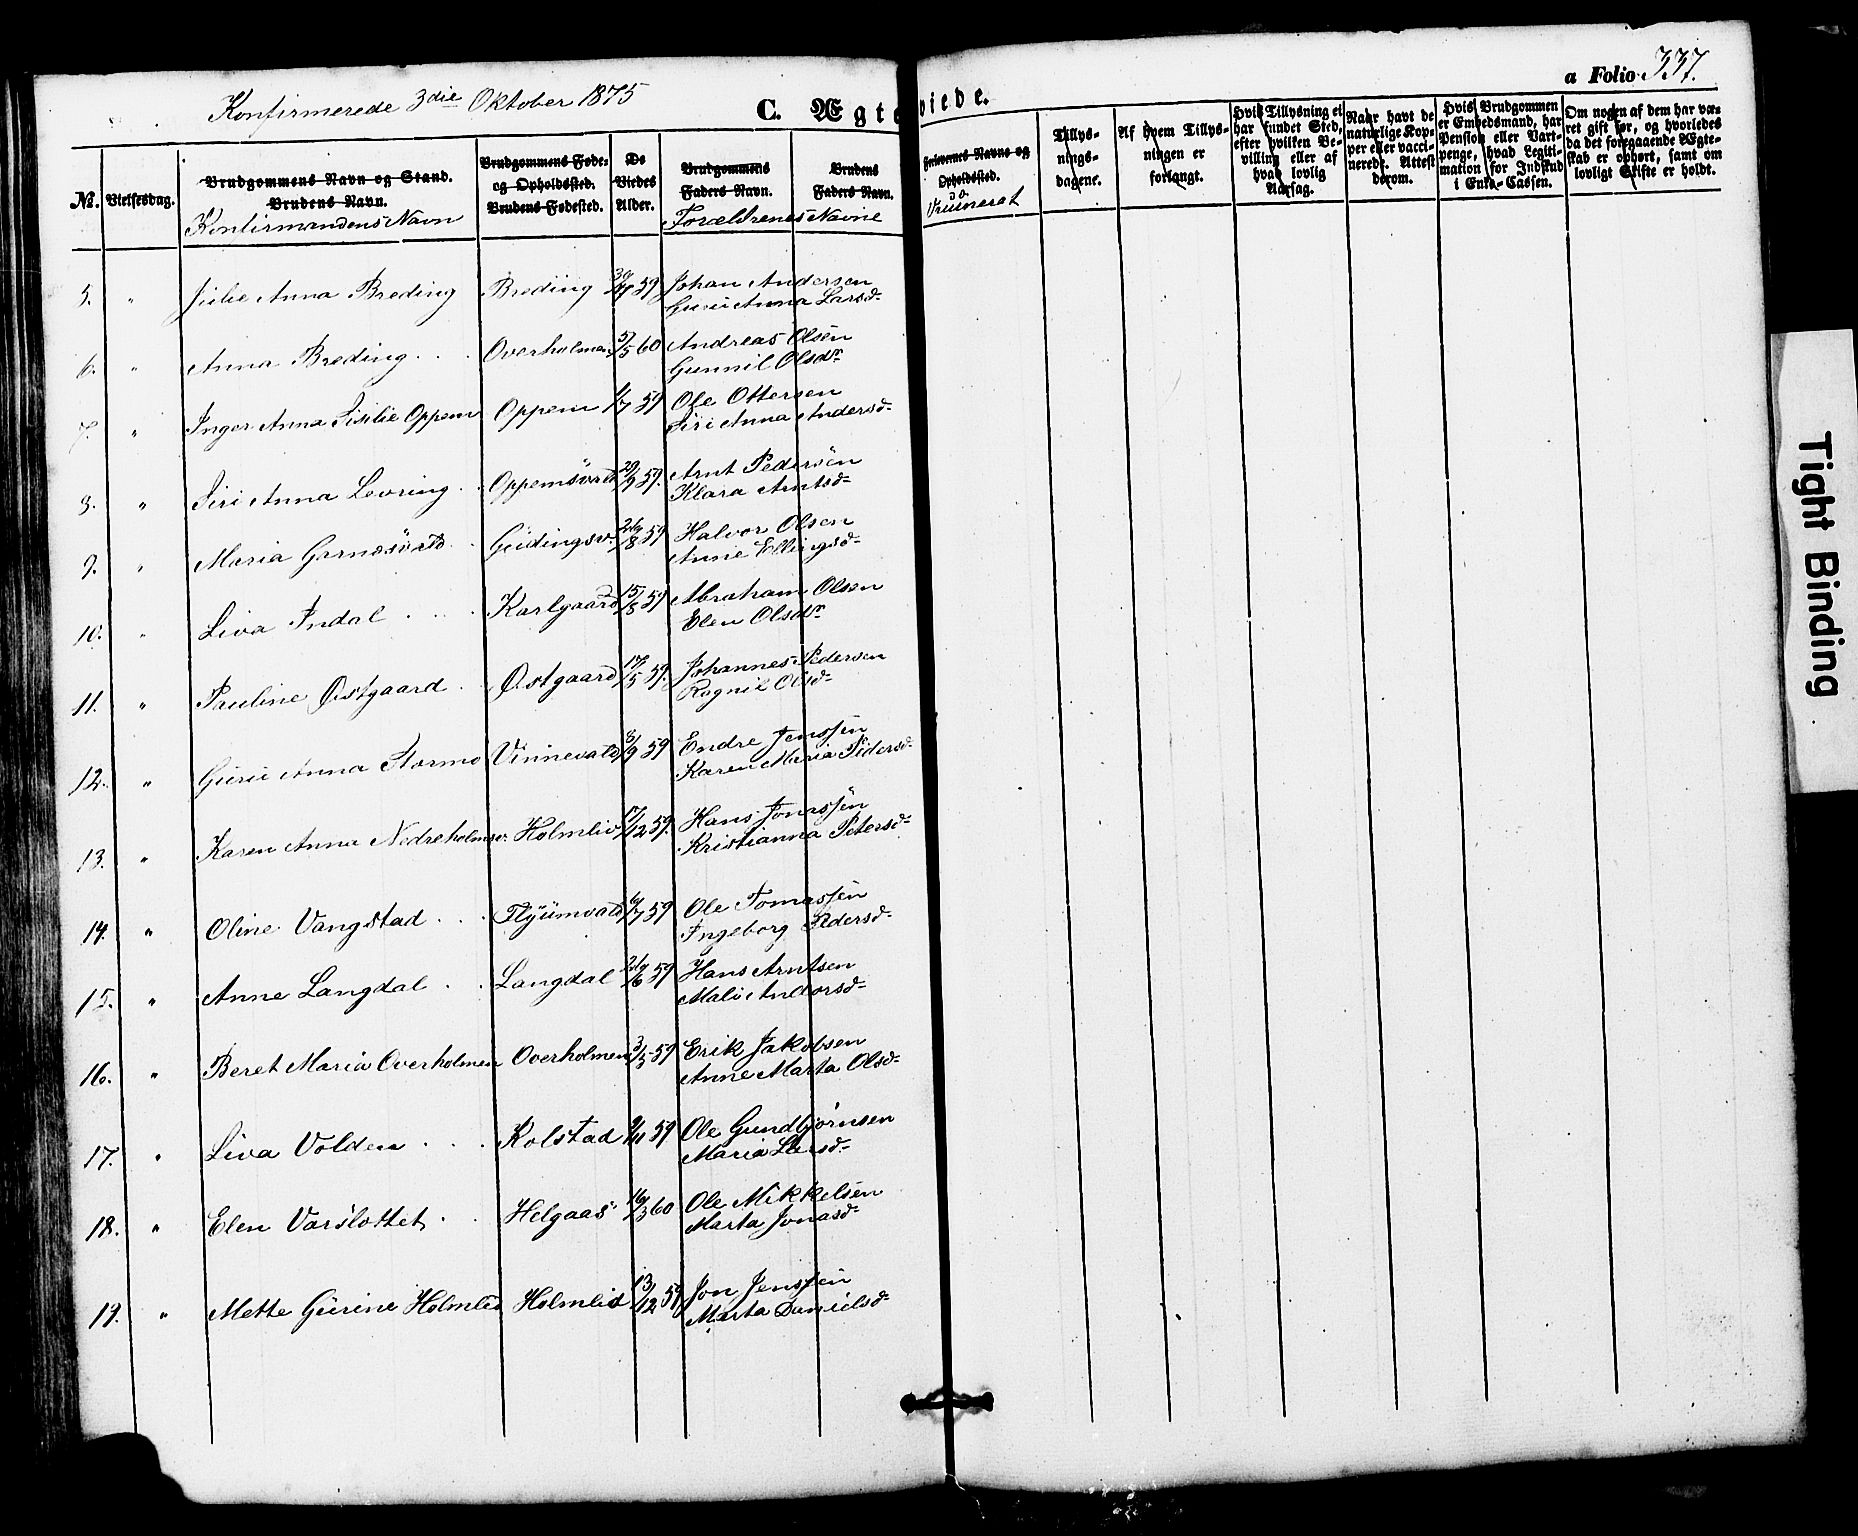 Konfirmerede 3die Oktober 1875
C. Ægte viede.
a Folio 337.
No. Vielsesdag. Brudgommens Navn og Stand. Brudens Navn. Konfirmandens Navn
Brudgommens Føde- og Opholdssted. Brudens Fødested.
De Viedes Alder.
Brudgommens Faders Navn. Brudens Faders Navn. Forældrenes Navne
Forlovernes Navne og Opholdssted.
Tillys- nings- dagene.
Af hvem Tillys- ningen er forlangt.
Hvis Tillysning ei har fundet Sted, efter hvilken Be- villing eller af hvad lovlig Aarsag.
Naar havt de naturlige Kop- per eller vacci- nerede. Attest derom.
Hvis Brudgommen er Embedsmand, har Pension eller Vart- penge, hvad Legiti- mation for Indskud i Enke-Cassen.
Om nogen af dem har væ- ret gift før, og hvorledes da det foregaaende Ægte- skab er ophørt, samt om lovligt Skifte er holdt.
5. " Julie Anna Breding Breding 30/11 59 Johan Andersen
Guru Anna Larsd-
6. " Anna Breding Overholmen 5/5 60 Andreas Olsen
Gunnil Olsdr
7. " Inger Anna Sisilie Oppem Oppem 1/7 59 Ole Ottersen
Siri Anna Andersd-
8. " Siri Anna Levring 29/9 59. Arnt Pedersen
Klara Arntsd-
9. " Maria 26/8 59 Halvor Olsen
Anne Ellingsd-
10. " Liva Indal Karlgaard 15/8 59 Abraham Olsen
Elen Olsdr
11. " Pauline Østgaard Østgaard 17/5 59. Johannes Pedersen
Ragnil Olsd-
12. " Guru Anna Stormo Vinnevald 3/9 59 Endre Jenssen
Karen Maria Pedersd-
13. " Karen Anna Nedreholmsv. Holmliv. 17/12 59. Hans Jonassen
Kristianna Petersd-
14. " Oline Vangstad 6/7 59 Ole Tomassen
Ingeborg Pedersd-
15. " Anne Langdal Langdal 26/6 59 Hans Arntsen
Mali Andorsd-
16. " Beret Maria Overholmen Overholmen 3/5 59 Erik Jakobsen
Anne Marta Olsd-
17. " Liva Volden Kolstad 9/11 59 Ole Gundbjørnsen
Maria Larsd-
18. " Elen Varslottet Helgaas 16/3 60 Ole Mikkelsen
Marta Jonasd-
19. " Mette Gurine Holmlid Holmlid 13/12 59 Jon Jenssen
Marta Danielsd-
Tight Binding